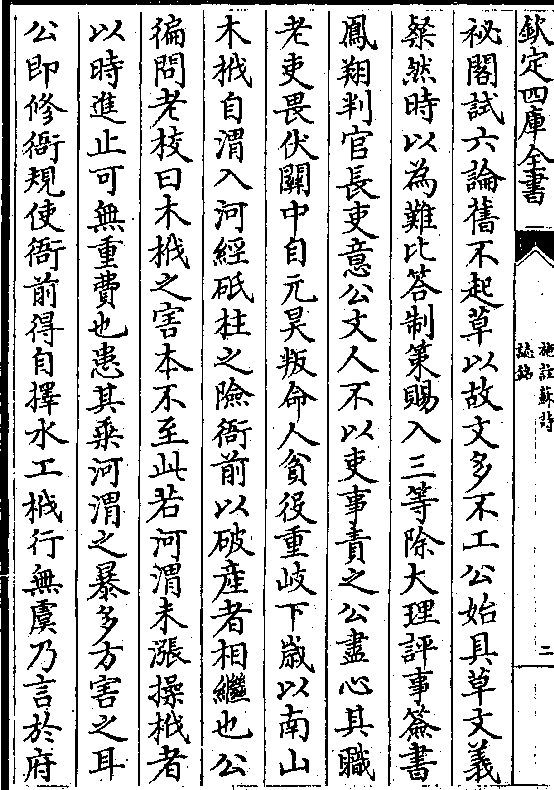 欽定四庫全書
施註蘇詩
誌銘
二
祕閣試六論舊不起草以故文多不工公始具草文義
粲然時以為難比答制策賜入三等除大理評事簽書
鳳翔判官長吏意公文人不以吏事責之公盡心其職
老吏畏伏關中自元昊叛命人貧役重岐下歲以南山
木栰自渭入河經砥柱之險衙前以破產者相繼也公
徧問老校曰木栰之害本不至此若河渭未漲操栰者
以時進止可無重費也患其乘河渭之暴多方害之耳
公即修衙規使衙前得自擇水工栰行無虞乃言於府